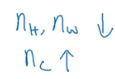 n_H, n_w ↓
n_c ↑